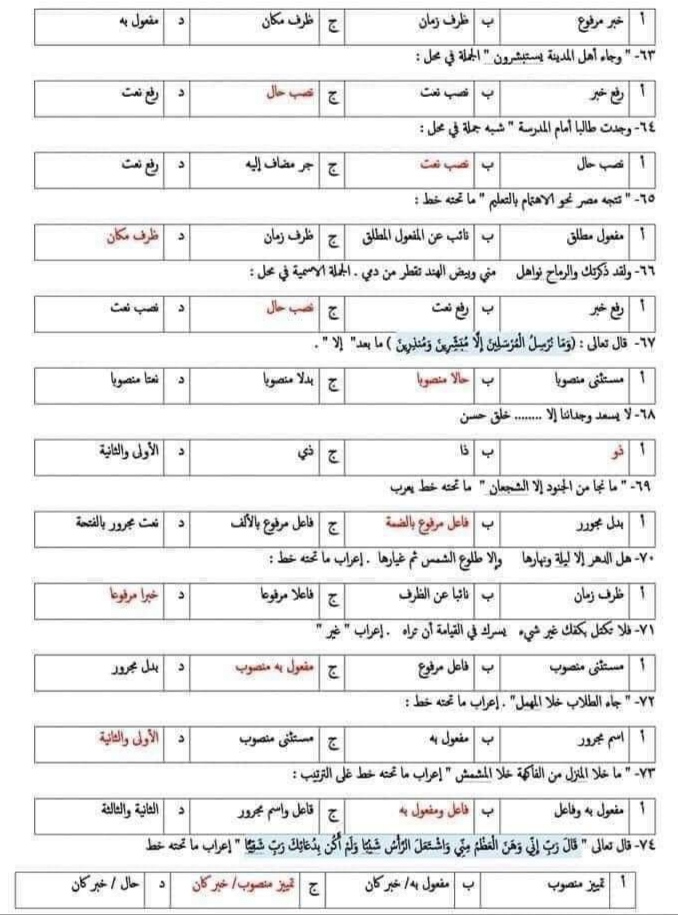 أ خبر مرفوع ب ظرف زمان ج ظرف مكان د مفعول به
٦٣- " وجاء أهل المدينة يستبشرون " الجملة في محل :
أ رفع خبر ب نصب نعت ج نصب حال د رفع نعت
٦٤- وجدت طالبا أمام المدرسة " شبه جملة في محل :
أ نصب حال ب نصب نعت ج جر مضاف إليه د رفع نعت
٦٥- " تتجه مصر نحو الاهتمام بالتعليم " ما تحته خط :
أ مفعول مطلق ب نائب عن المفعول المطلق ج ظرف زمان د ظرف مكان
٦٦- ولقد ذكرتك والرماح نواهل مني وبيض الهند تقطر من دمي . الجملة الاسمية في محل :
أ رفع خبر ب رفع نعت ج نصب حال د نصب نعت
٦٧- قال تعالى : (وَمَا نُرْسِلُ الْمُرْسَلِينَ إِلَّا مُبَشِّرِينَ وَمُنذِرِينَ ) ما بعد" إلا " .
أ مستثنى منصوبا ب حالا منصوبا ج بدلا منصوبا د نعتا منصوبا
٦٨- لا يسعد وجداننا إلا ........ خلق حسن
أ ذو ب ذا ج ذي د الأولى والثانية
٦٩- " ما نجا من الجنود إلا الشجعان " ما تحته خط يعرب
أ بدل مجرور ب فاعل مرفوع بالضمة ج فاعل مرفوع بالألف د نعت مجرور بالفتحة
٧٠- هل الدهر إلا ليلة ونهارها وإلا طلوع الشمس ثم غيارها . إعراب ما تحته خط :
أ ظرف زمان ب نائبا عن الظرف ج فاعلا مرفوعا د خبرا مرفوعا
٧١- فلا تكتل بكفك غير شيء يسرك في القيامة أن تراه . إعراب " غير "
أ مستثنى منصوب ب فاعل مرفوع ج مفعول به منصوب د بدل مجرور
٧٢- " جاء الطلاب خلا المهمل" . إعراب ما تحته خط :
أ اسم مجرور ب مفعول به ج مستثنى منصوب د الأولى والثانية
٧٣- " ما خلا المنزل من الفاكهة خلا المشمش " إعراب ما تحته خط على الترتيب :
أ مفعول به وفاعل ب فاعل ومفعول به ج فاعل واسم مجرور د الثانية والثالثة
٧٤- قال تعالى " قَالَ رَبِّ إِنِّي وَهَنَ الْعَظْمُ مِنِّي وَاشْتَعَلَ الرَّأْسُ شَيْبًا وَلَمْ أَكُن بِدُعَائِكَ رَبِّ شَقِيًّا " إعراب ما تحته خط
أ تمييز منصوب ب مفعول به / خبر كان ج تمييز منصوب/ خبر كان د حال / خبر كان